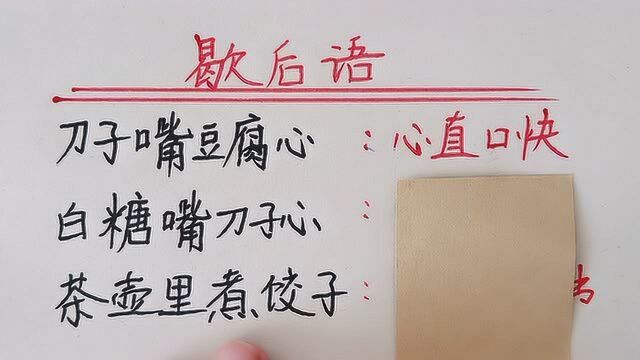 歇后语
刀子嘴豆腐心：心直口快
白糖嘴刀子心：
茶壶里煮饺子：